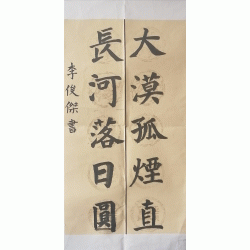 大漠孤煙直
長河落日圓
李俊傑書